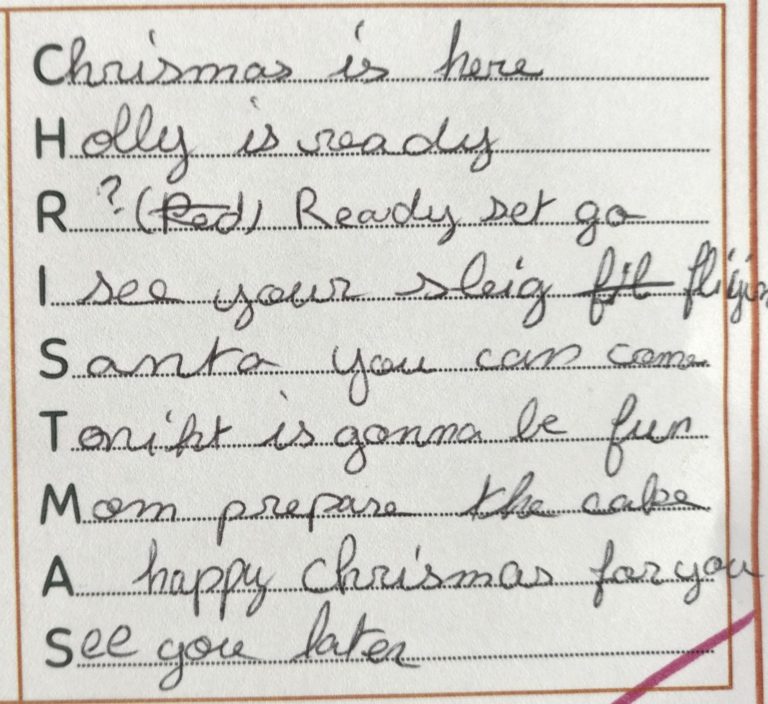 Chrismas is here
Holly is ready
R ? (Red) Ready set go
I see your sleig fil fligin
Santa you can come
Toniht is gonna be fun
Mom prepare the cake
A happy Chrismas for you
See you later